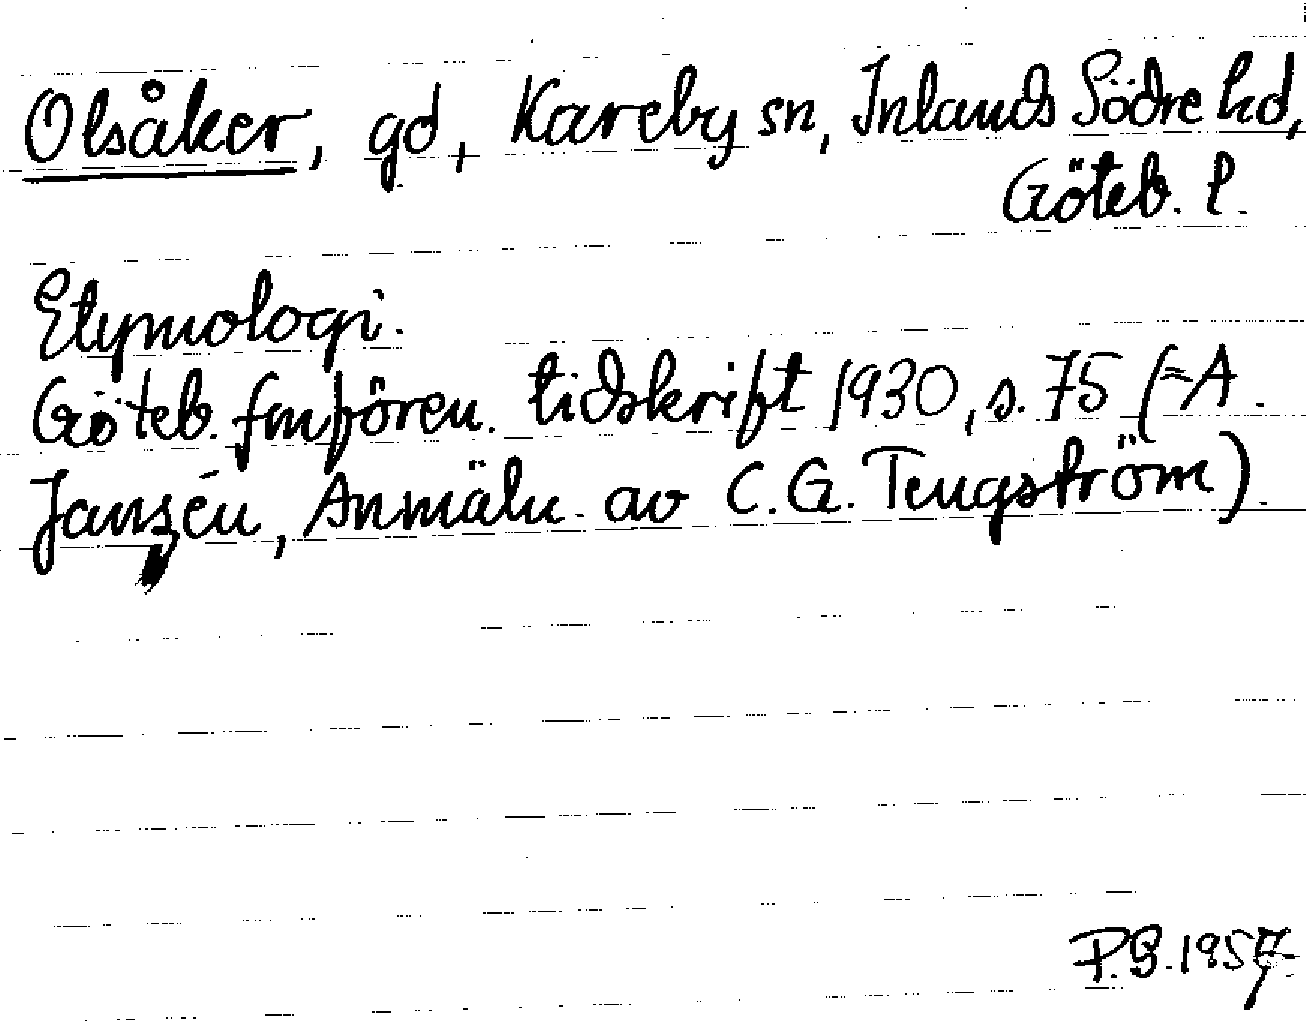 Olsåker, gd, Kareby sn, Inlands Södre hd,
Göteb. l.
Etymologi.
Göteb. fmfören. tidskrift 1930, s. 75 (=A.
Janzén, Anmäln. av C.G. Tengström).
P.B. 1957